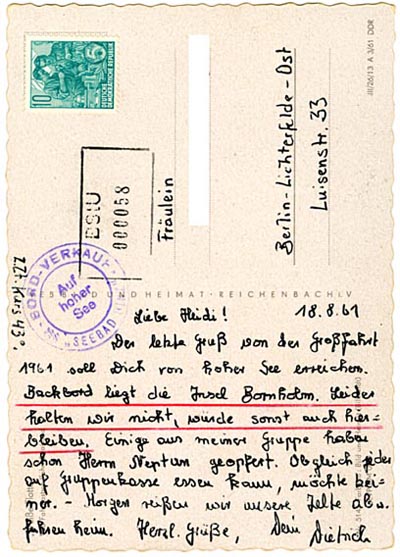 10
DEUTSCHE
DEMOKRATISCHE REPUBLIK
III/26/13 A 3/61 DDR
BStU
000058
Fräulein
Berlin-Lichterfelde-Ost
Luisenstr. 33
BORD-VERKAUF
Auf
hoher
See
MS SEEBAD
z.Zt. Kurs 43°.
UND HEIMAT · REICHENBACH i.V
Liebe Heidi! 18.8.61
Der letzte Gruß von der Großfahrt
1961 soll Dich von hoher See erreichen.
Backbord liegt die Insel Bornholm. Leider
halten wir nicht, würde sonst auch hier-
bleiben. Einige aus meiner Gruppe haben
schon Herrn Neptun geopfert. Obgleich jeder
auf Gruppenkasse essen kann, möchte kei-
ner. - Morgen reißen wir unsere Zelte ab u.
fahren heim. Herzl. Grüße, Dein Dietrich